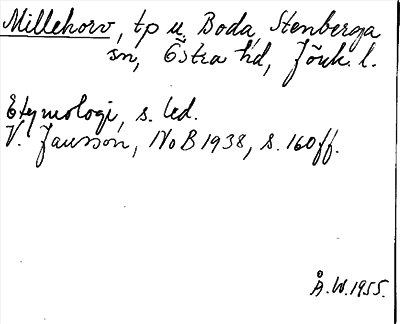 Millekorv, tp u. Boda, Stenberga
sn, Östra hd, Jönk. l.
Etymologi, s. led.
V. Jansson, NoB 1938, s. 160 ff.
Å.W. 1955.